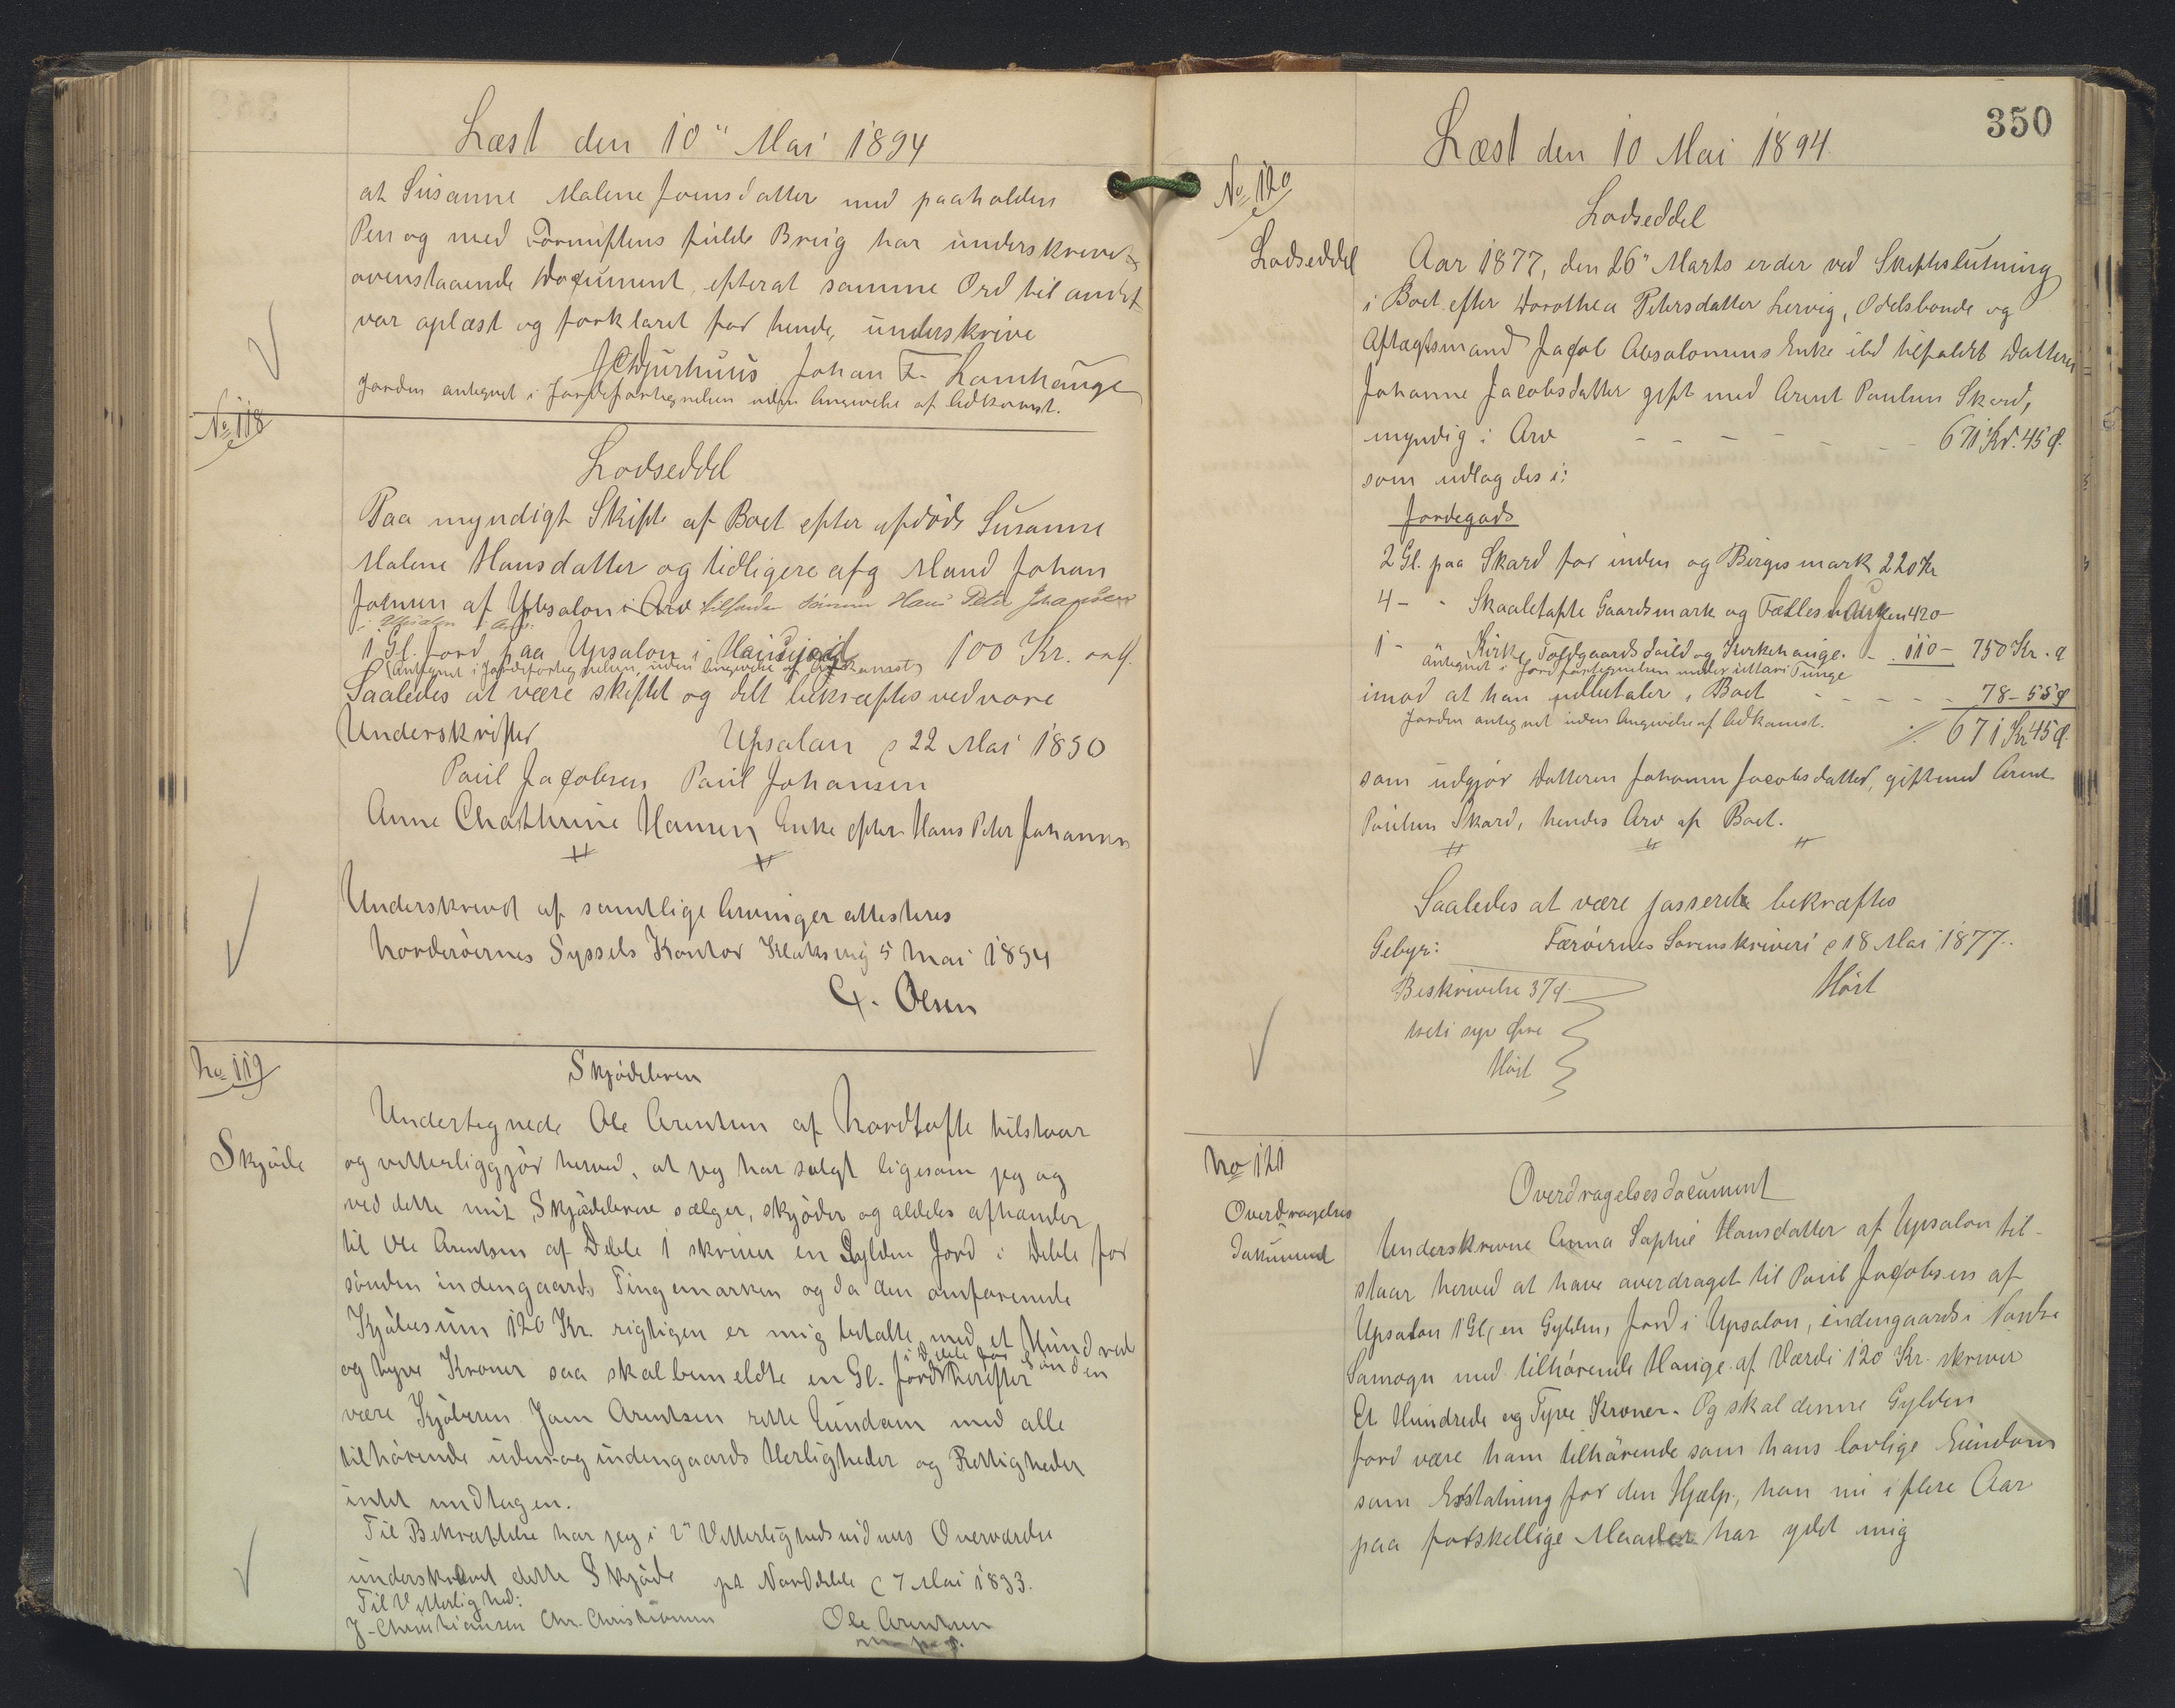 Læst den 10" Mai 1894
at Susanne Malene Joensdatter med paaholden
Pen og med Fornuftens fulde Brug har underskrevet
ovenstaaende Document, efterat samme Ord til andet
var oplæst og forklaret for hende, underskrive
JCDjurhuus Johan F. Lamhauge
Jorden antegnet i Jordefortegnelsen uden Angivelse af Adkomst.
No 118
Lodseddel
Paa myndigt Skifte af Boet efter afdöde Susanne
Malene Hansdatter og tidligere afg Mand Johan
Joensen af Upsalon i Arv tilfaldt sönnen Hans Peter Johansen
i Upsalon i Arv:
1 Gl. Jord paa Upsalon i 100 Kr.
(antegnet i Jordefortegnelsen, uden Angivelse af Adkomst)
Saaledes at være skiftet og delt bekræftes ved vore
Underskrifter Upsalon d 22 Mai 1890
Paul Jacobsen Paul Johansen
Anne Chathrine Hansen Enke efter Hans Peter Johansen
Underskrevet af samtlige Arvinger attesteres
Norderöernes Syssels Kontor Klaksvig 5 Mai 1894
C. Olsen
No 119
Skjödebrev
Skjöde
Undertegnede Ole Arentsen af Nordtofte tilstaar
og vitterliggjör herved, at jeg har solgt ligesom jeg og
ved dette mit Skjödebrev sælger, skjöder og aldeles afhænder
til Ole Arentsen af Deble 1 skriver en Gylden Jord i Deble for
sönden indengaards Tingemarken og da den omforenede
Kjöbesum 120 Kr. rigtigen er mig betalte med et Hundred
i Deble for Sönden
og tyve Kroner saa skal bemeldte en Gl. Jord herefter
være Kjöberen Joen Arentsen rette Eiendom med alle
tilhörende uden- og indengaards Herligheder og Rettigheder
intet undtagen.
Til Bekræftelse har jeg i 2" Vitterlighedsvidners Overværelse
underskrevet dette Skjöde pt Norddeble d 7 Mai 1893.
Til Vitterlighed:
J. Christiansen Chr. Christiansen Ole Arentsen
m. p. P.
350
Læst den 10 Mai 1894.
No 120
Lodseddel
Lodseddel
Aar 1877, den 26" Marts er der ved Skifteslutning
i Boet efter Dorothea Petersdatter Lervig, Odelsbonde og
Aftægtsmand Jacob Absalonsens Enke ibd tilfaldt Datteren
Johanne Jacobsdatter gift med Arent Poulsen Skard,
myndig i Arv - - - - - - 671 Kr. 45 Ø.
som udlagdes i:
Jordegods
2 Gl. paa Skard for inden og Birgis mark 220 Kr
4 - " Skaaletofte Gaardsmark og Fælles Marken 420 -
1 - " Kirke, Toftgaards Deild og Kirkehauge. - 110 - 750 Kr. Ø
antegnet i Jordfortegnelsen under uttari Tunge
imod at han udbetaler i Boet - - - - - 78 - 55 Ø
Jorden antegnet uden Angivelse af Adkomst.
./. 671 Kr 45 Ø.
som udgjör Datteren Johanne Jacobsdatter, gift med Arent
Poulsen Skard, hendes Arv af Boet.
Saaledes at være passeret bekræftes
Færöernes Sorenskriveri d 18 Mai 1877.
Gebyr:
Höst
Beskrivelse 37 Ø.
treti syv Øre
Höst
No 121
Overdragelsesdocument
Overdragelses
dokument
Underskrevne Anna Sophie Hansdatter af Upsalon til-
staar herved at have overdraget til Poul Jacobsen af
Upsalon 1 Gl, en Gylden, Jord i Upsalon, indengaards i Nordre
Samogn med tilhörende Hauge af Værdi 120 Kr. skriver
Et Hundrede og Tyve Kroner. Og skal denne Gylden
Jord være ham tilhörende som hans lovlige Eiendom
som Erstatning for den Hjælp, han nu i flere Aar
paa forskellige Maader har ydet mig